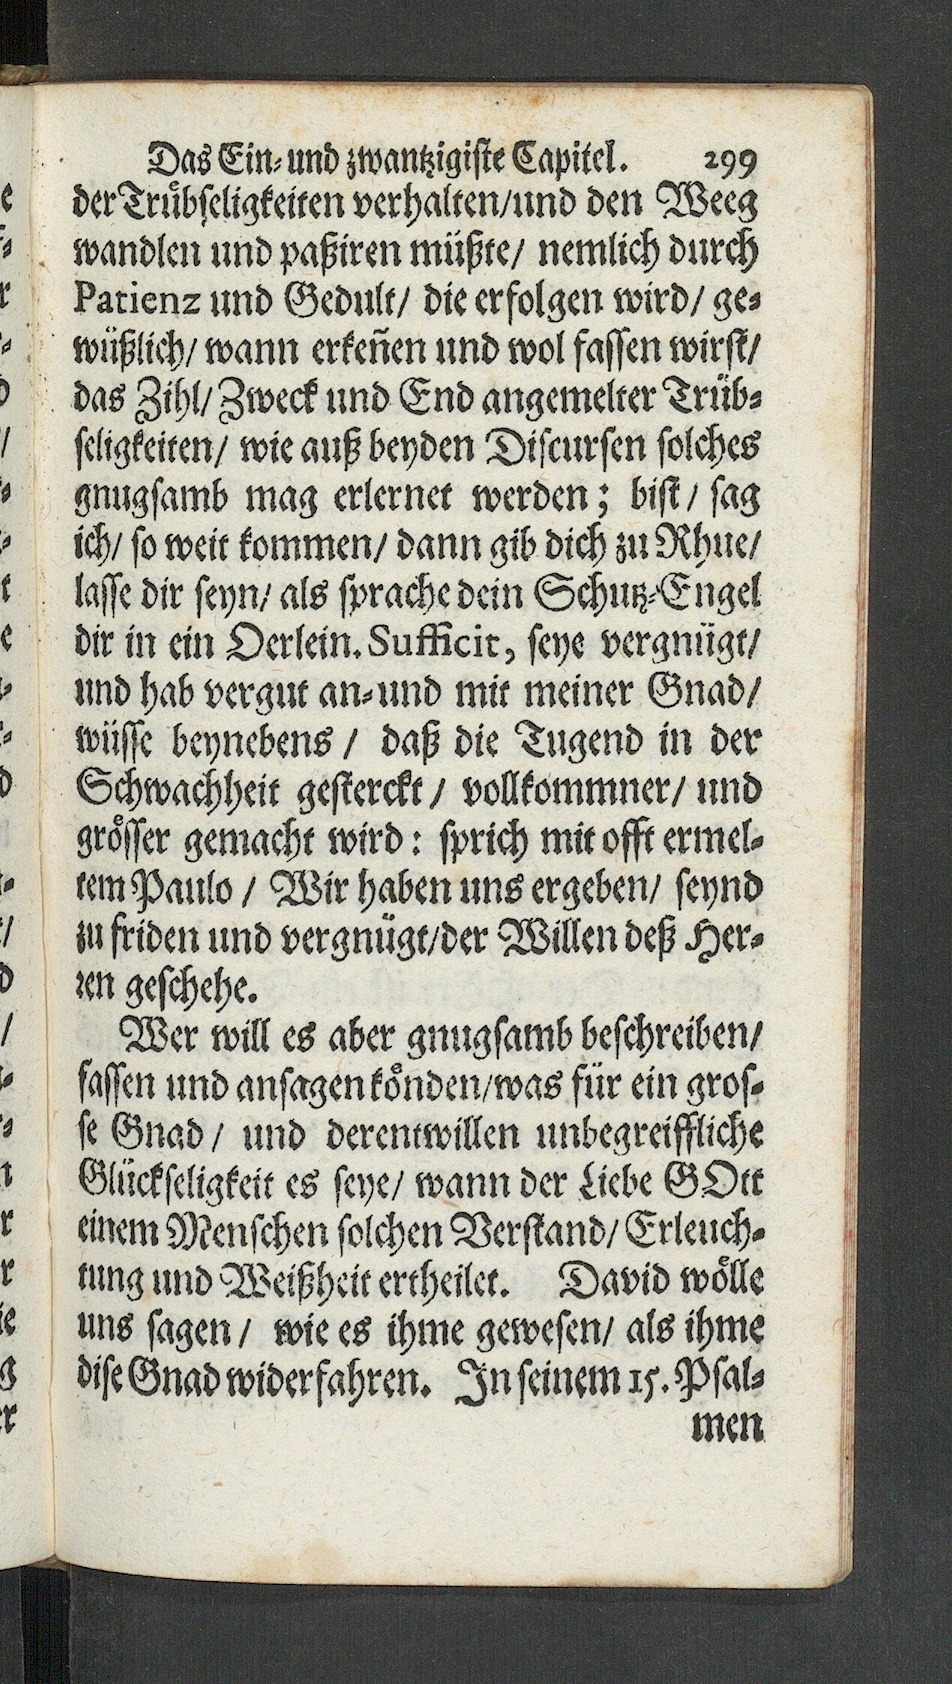 Das Ein- und zwantzigiste Capitel. 299
der Trůbseligkeiten verhalten/und den Weeg
wandlen und paßiren müßte/ nemlich durch
Patienz und Gedult/ die erfolgen wird/ ge-
wüßlich/ wann erkeñen und wol fassen wirst/
das Zihl/ Zweck und End angemelter Trüb-
seligkeiten/ wie auß beyden Discursen solches
gnugsamb mag erlernet werden; bist/ sag
ich/ so weit kommen/ dann gib dich zu Rhue/
lasse dir seyn/ als sprache dein Schutz-Engel
dir in ein Oerlein. Sufficit, seye vergnügt/
und hab vergut an- und mit meiner Gnad/
wüsse beynebens / daß die Tugend in der
Schwachheit gesterckt / vollkommner/ und
grösser gemacht wird: sprich mit offt ermel-
tem Paulo / Wir haben uns ergeben/ seynd
zu friden und vergnügt/der Willen deß Her-
ren geschehe.
Wer will es aber gnugsamb beschreiben/
fassen und ansagen könden/was für ein gros-
se Gnad / und derentwillen unbegreiffliche
Glückseligkeit es seye/ wann der Liebe GOtt
einem Menschen solchen Verstand/ Erleuch-
tung und Weißheit ertheilet. David wölle
uns sagen / wie es ihme gewesen/ als ihme
dise Gnad widerfahren. In seinem 15. Psal-
men